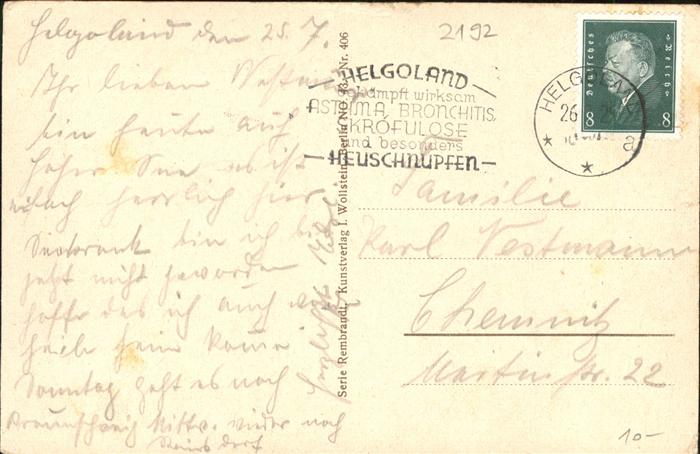 Helgoland den 25. 7.
Ihr lieben Vestmann
bin heute auf
hoher See es ist
einfach herrlich hier
Seekrank bin ich bis
jetzt nicht geworden
hoffe das ich auch
heile heim komme
Sonntag geht es nach
Braunschweig Mittw. wieder nach
dorf
Herzlichst
Serie Rembrandt, Kunstverlag I. Wollstein, Berlin NO 43. Nr. 406
2192
HELGOLAND
bekämpft wirksam
ASTHMA, BRONCHITIS,
SKROFULOSE
und besonders
HEUSCHNUPFEN
Deutsches Reich
8 8
HELGOLAND
26
a
Familie
Karl Vestmann
Chemnitz
Martinstr. 22
10-